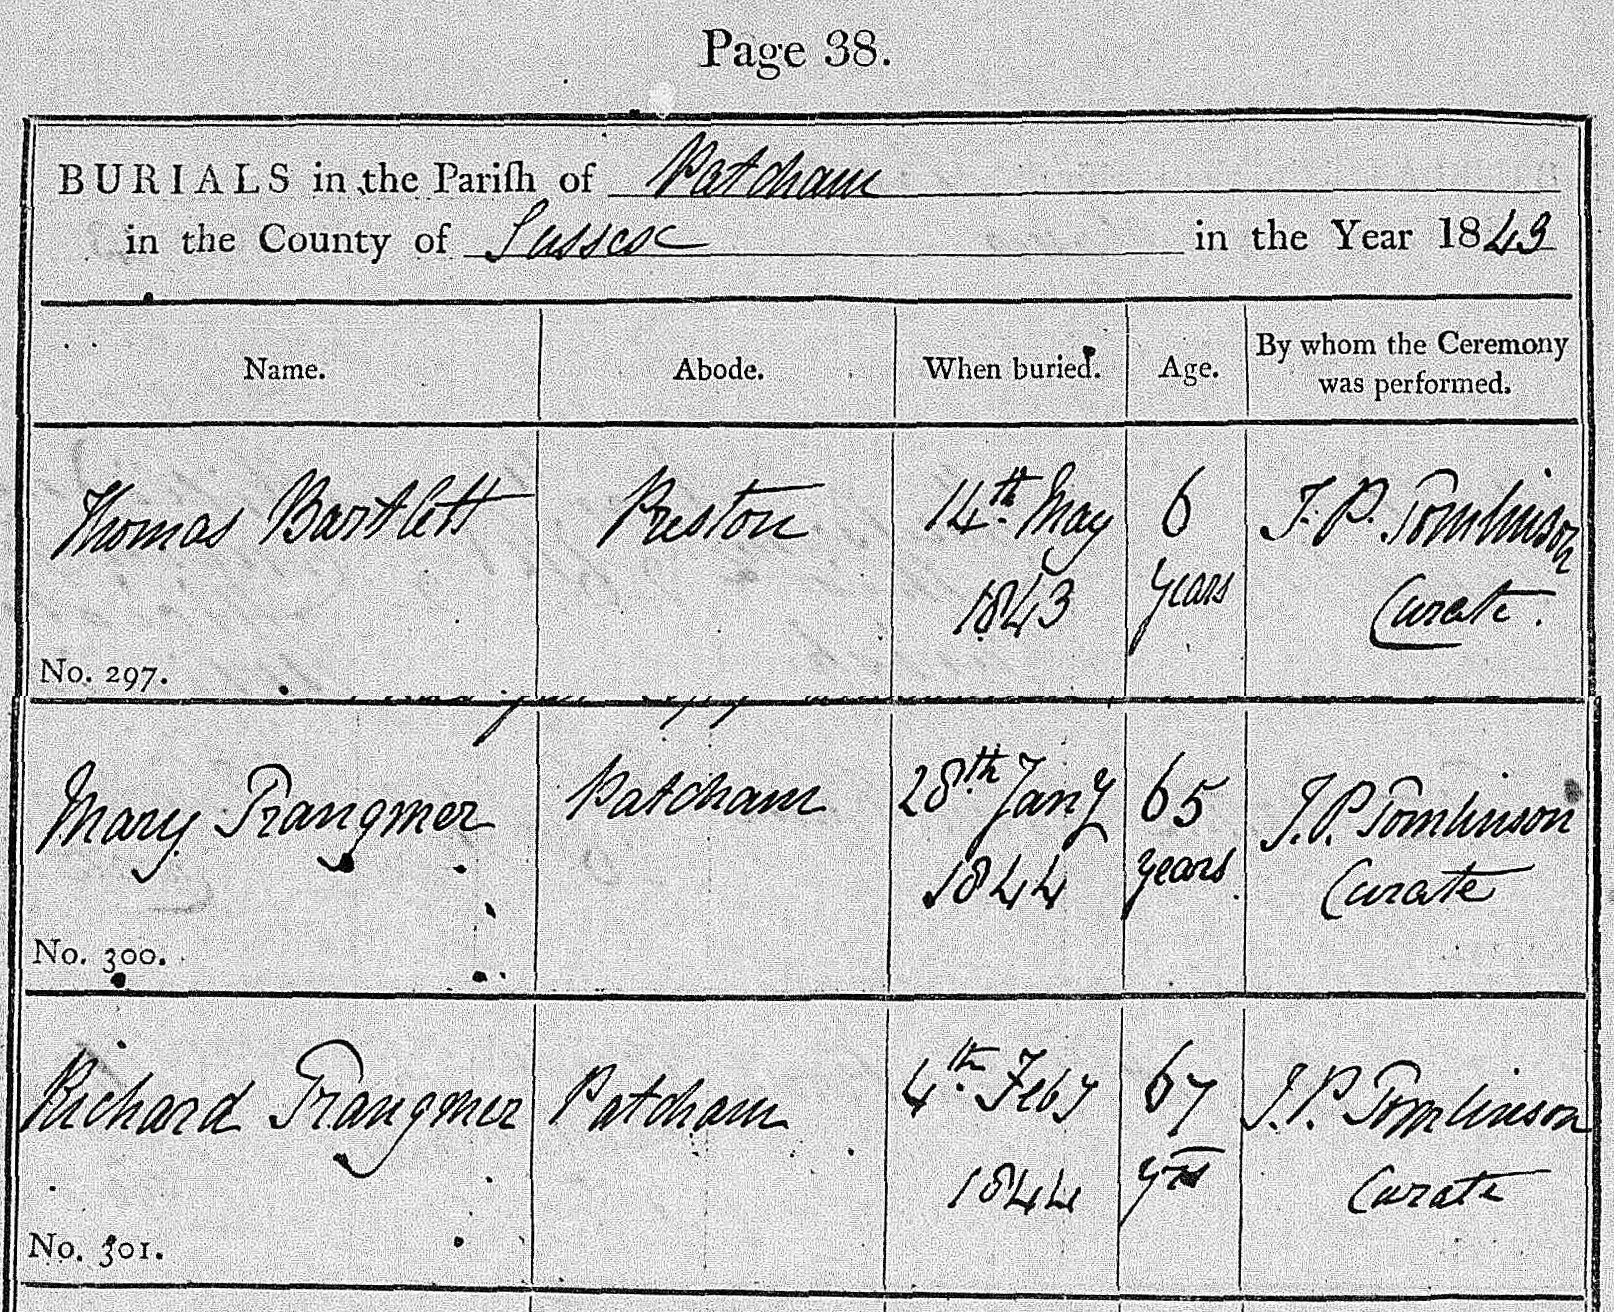 Page 38.
BURIALS in the Pariſh of Patcham
in the County of Sussex in the Year 1843
Name. Abode. When buried. Age. By whom the Ceremony was performed.
Thomas Bartlett Preston 14th May 6 J. P. Tomlinson
1843 years Curate.
No. 297.
Mary Trangmer Patcham 28th Jany 65 J. P. Tomlinson
1844 years Curate
No. 300.
Richard Trangmer Patcham 4th Feby 67 J. P. Tomlinson
1844 yrs Curate
No. 301.